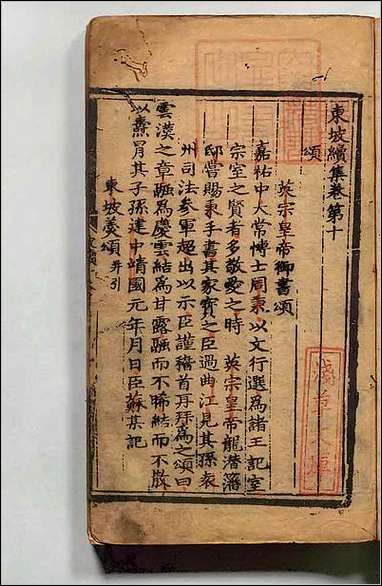 東坡續集卷第十
頌
英宗皇帝御書頌
嘉祐中大常博士周秉以文行選爲諸王記室
宗室之賢者多敬愛之時 英宗皇帝龍潛藩
邸嘗賜秉手書其家寶之臣過曲江見其孫袁
州司法參軍超出以示臣謹稽首再拜爲之頌曰
雲漢之章融爲慶雲結爲甘露融而不晞結而不散
以燾冒其子孫建中靖國元年月日臣蘇某記
東坡羹頌 并引